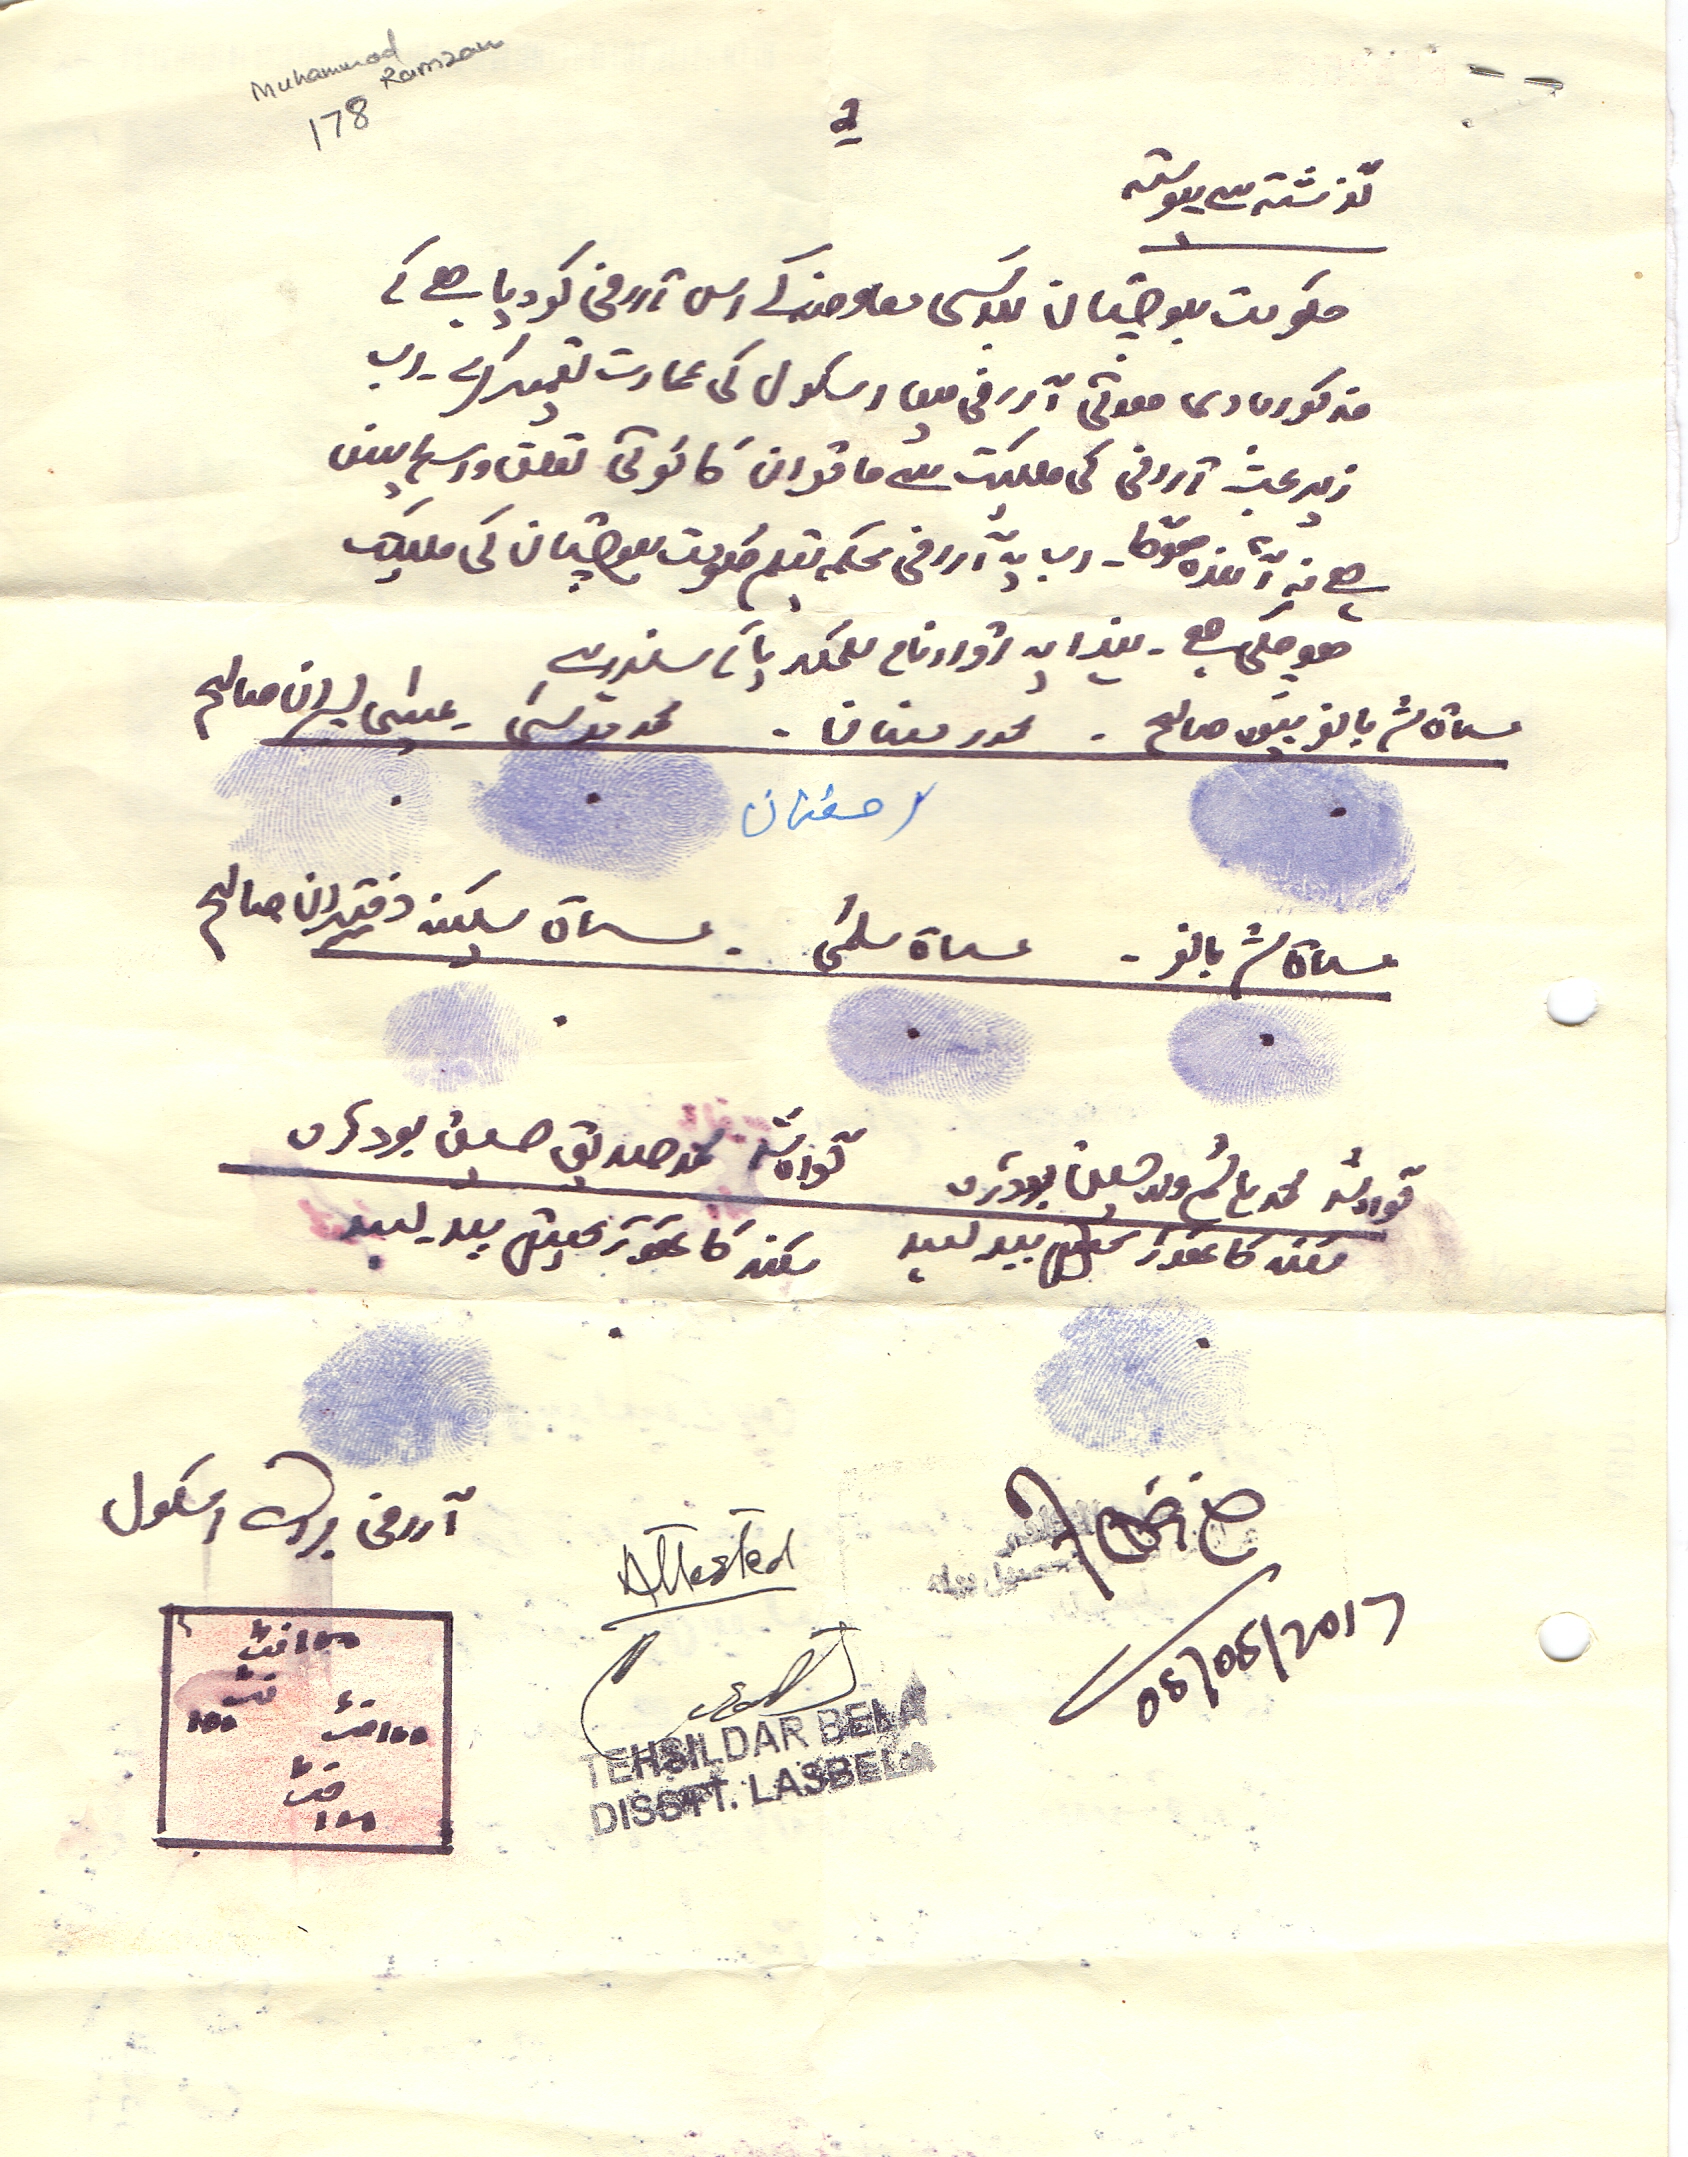 Muhammad
Ramzan
178
2
گذشتہ سے پیوستہ
حکومت بلوچستان بلا کسی معاوضہ کے اس آراضی کو دیا ہے کے
مذکورہ بالا آراضی میں اسکول کی عمارت تعمیر کرے۔ اب
زیر بحث آراضی کی ملکیت سے ماقران کا کوئی تعلق واسطہ نہیں
ہے نہ آئندہ ہوگا۔ اب یہ آراضی محکمہ تعلیم حکومت بلوچستان کی ملکیت
ہو چکی ہے۔ لہذا یہ اقرار نامہ لکھکر دیا کے سند رہے
مسماۃ شہر بانو بیوہ صالح - محمد رمضان - محمد موسیٰ - عیسیٰ پسران صالح
رمضان
مسماۃ شہر بانو - مسماۃ سلمیٰ - مسماۃ سکینہ دختران صالح
گواہ شد محمد ہاشم ولد
گواہ شد محمد صدیق
سکنہ تحصیل بیلہ لسبیلہ
سکنہ تحصیل بیلہ لسبیلہ
آراضی برائے اسکول
100 فٹ
فٹ
100
100 فٹ
فٹ
100
Attested
TEHSILDAR BELA
DISTT. LASBELA
08/08/2017